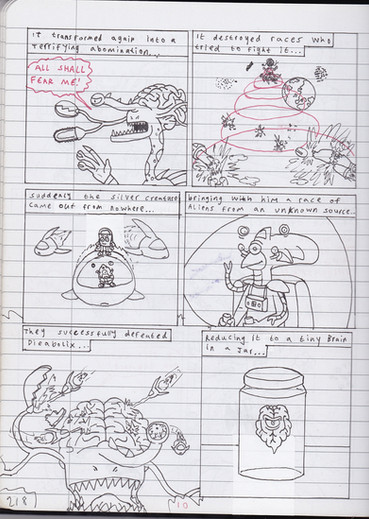 It transformed again into a
Terrifying abomination...
ALL SHALL
FEAR ME!
It destroyed races who
tried to fight it...
suddenly the silver creature
came out from nowhere...
bringing with him a race of
Aliens from an unknown source...
They successfully defeated
Dieabolix...
Reducing It to a tiny Brain
in a Jar...
218
10